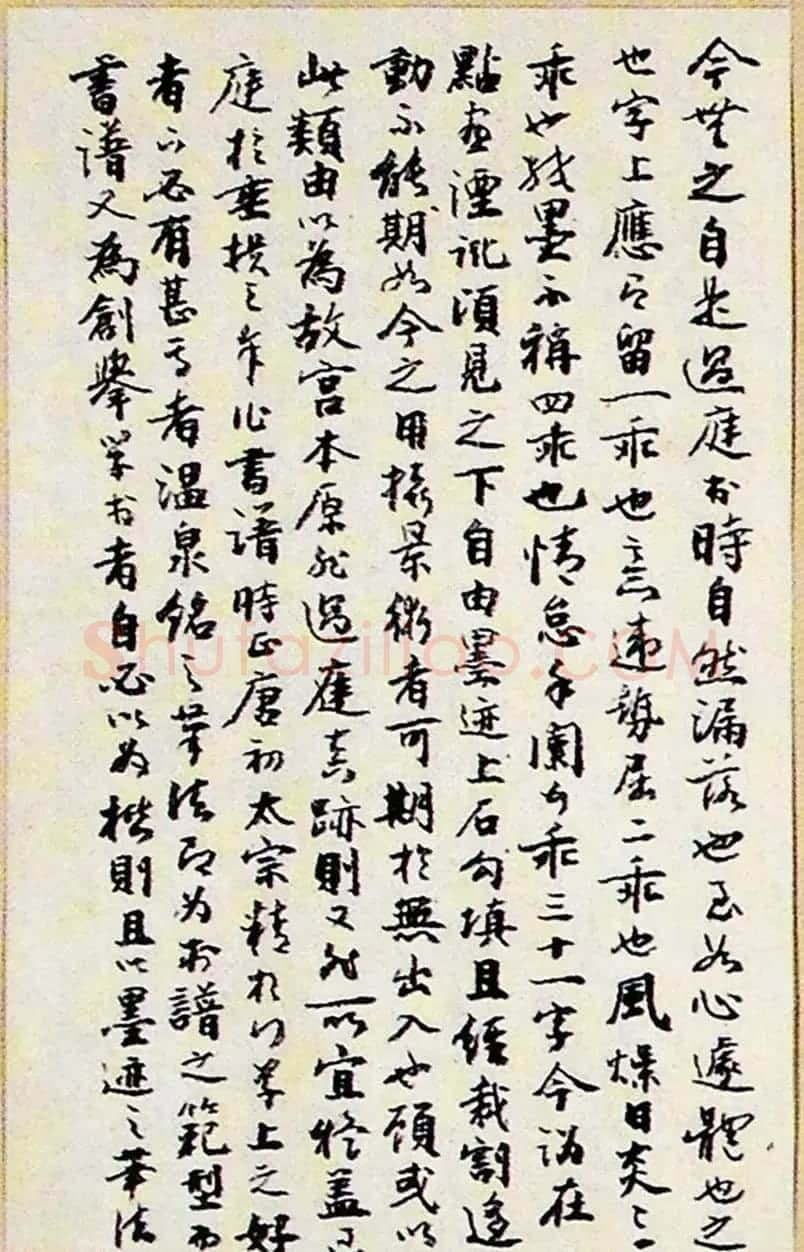 今無之自是過庭書時自然漏落也至如心遽體也之
也字上應有留一乖也意違勢屈二乖也風燥日炎三
乖也紙墨不稱四乖也情怠手闌五乖三十一字今謂在
點畫湮訛頃見之下自由墨迹上石勾填且經裁割遂
動不能期如今之用攝景術者可期於無出入也顧或以
此類由以為故宮本原非過庭真跡則又非所宜蓋
庭於垂拱之年作書譜時正唐初太宗精於行草上之好
者下必有甚焉者溫泉銘之筆法即為書譜之範型而
書譜又為創舉學書者自必以為楷則且以墨迹之筆法
Shufaziliao.COM